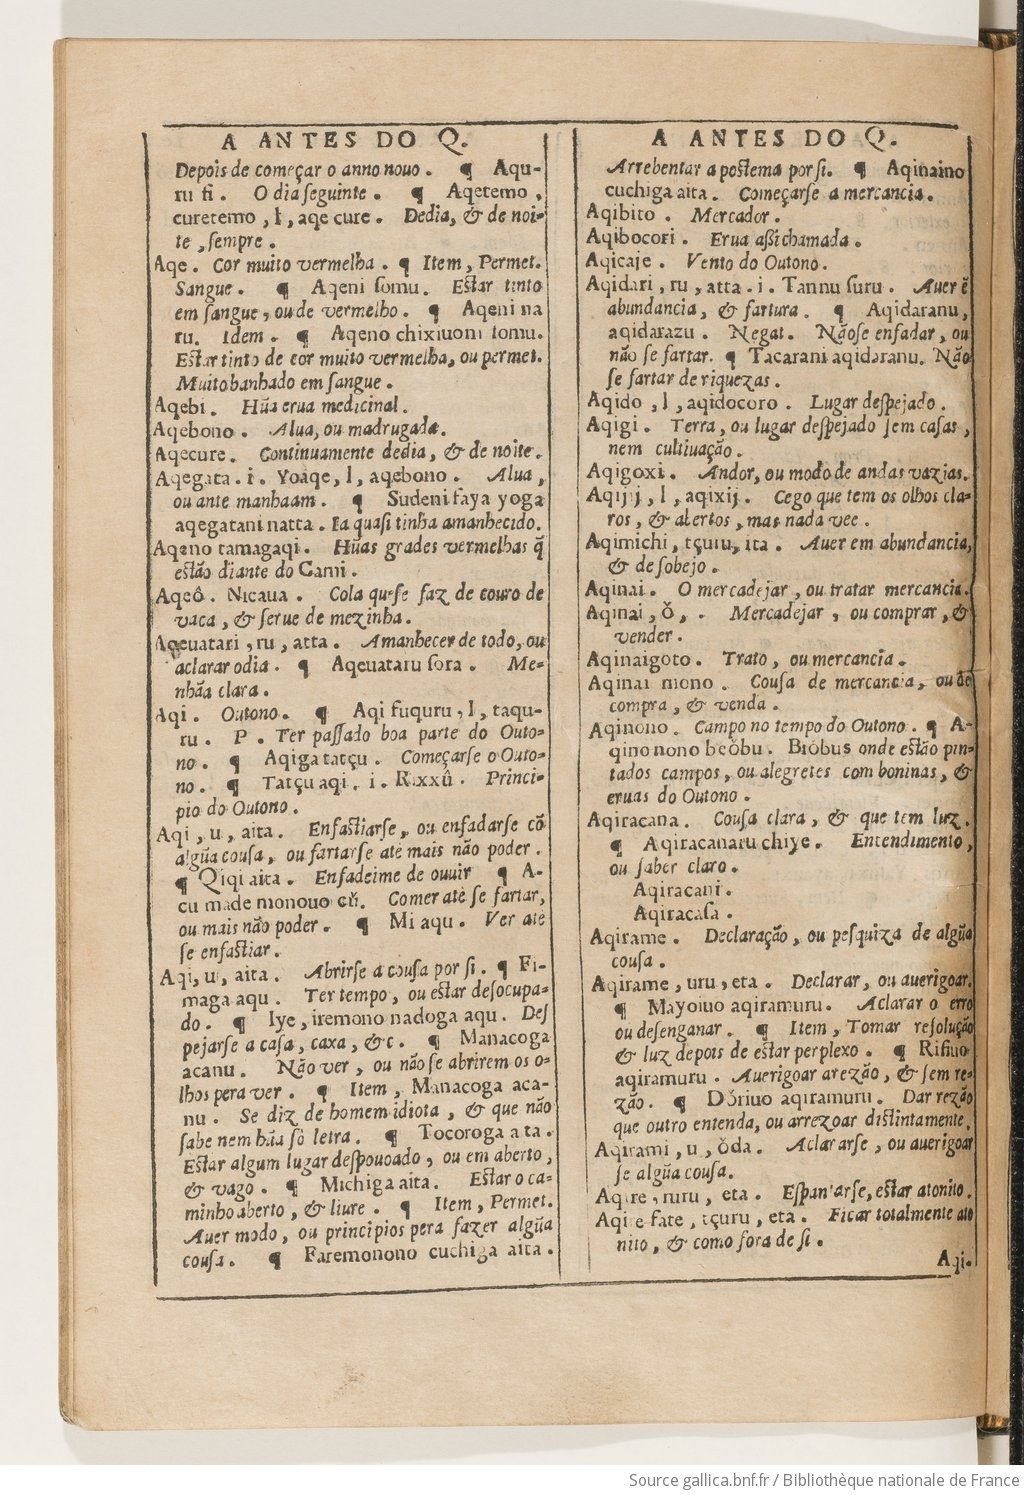 A ANTES DO Q.
Depois de começar o anno nouo. ¶ Aqu-
ru fi. O dia seguinte. ¶ Aqetemo,
curetemo, l, aqe cure. Dedia, & de noi-
te, sempre.
Aqe. Cor muito vermelha. ¶ Item, Permet.
Sangue. ¶ Aqeni somu. Estar tinto
em sangue, ou de vermelho. ¶ Aqeni na
ru. Idem. ¶ Aqeno chixiuoni somu.
Estar tinto de cor muito vermelha, ou permet.
Muito banhado em sangue.
Aqebi. Hũa erua medicinal.
Aqebono. Alua, ou madrugada.
Aqecure. Continuamente dedia, & de noite.
Aqegata. i. Yoaqe, l, aqebono. Alua,
ou ante manhaam. ¶ Sudeni faya yoga
aqegatani natta. Ia quasi tinha amanhecido.
Aqeno tamagaqi. Hũas grades vermelhas q̃
estão diante do Cami.
Aqeô. Nicaua. Cola que se faz de couro de
vaca, & serue de mezinha.
Aqeuatari, ru, atta. Amanhecer de todo, ou
aclarar odia. ¶ Aqeuataru sora. Me-
nhãa clara.
Aqi. Outono. ¶ Aqi fuquru, l, taqu-
ru. P. Ter passado boa parte do Outo-
no. ¶ Aqiga tatçu. Começarse o Outo-
no. ¶ Tatçu aqi. i. Rixxǔ. Princi-
pio do Outono.
Aqi, u, aita. Enfastiarse, ou enfadarse cõ
algũa cousa, ou fartarse até mais não poder.
¶ Qiqi aita. Enfadeime de ouuir ¶ A-
cu made monouo cǔ. Comer até se fartar,
ou mais não poder. ¶ Mi aqu. Ver até
se enfastiar.
Aqi, u, aita. Abrirse a cousa por si. ¶ Fi-
maga aqu. Ter tempo, ou estar desocupa-
do. ¶ Iye, iremono nadoga aqu. Des
pejarse a casa, caxa, &c. ¶ Manacoga
acanu. Não ver, ou não se abrirem os o-
lhos pera ver. ¶ Item, Manacoga aca-
nu. Se diz de homem idiota, & que não
sabe nem hũa sò letra. ¶ Tocoroga aita.
Estar algum lugar despouoado, ou em aberto,
& vago. ¶ Michiga aita. Estar o ca-
minho aberto, & liure. ¶ Item, Permet.
Auer modo, ou principios pera fazer algũa
cousa. ¶ Faremonono cuchiga aita.
A ANTES DO Q.
Arrebentar a postema por si. ¶ Aqinaino
cuchiga aita. Começarse a mercancia.
Aqibito. Mercador.
Aqibocori. Erua assi chamada.
Aqicaje. Vento do Outono.
Aqidari, ru, atta. i. Tannu suru. Auer ẽ
abundancia, & fartura. ¶ Aqidaranu,
aqidarazu. Negat. Nãose enfadar, ou
não se fartar. ¶ Tacarani aqidaranu. Não
se fartar de riquezas.
Aqido, l, aqidocoro. Lugar despejado.
Aqigi. Terra, ou lugar despejado sem casas,
nem cultiuação.
Aqigoxi. Andor, ou modo de andas vazias.
Aqijij, l, aqixij. Cego que tem os olhos cla-
ros, & abertos, mas nada vee.
Aqimichi, tçuru, ita. Auer em abundancia,
& de sobejo.
Aqinai. O mercadejar, ou tratar mercancia.
Aqinai, ǒ, . Mercadejar, ou comprar, &
vender.
Aqinaigoto. Trato, ou mercancia.
Aqinai mono. Cousa de mercancia, ou de
compra, & venda.
Aqinono. Campo no tempo do Outono. ¶ A-
qino nono beǒbu. Biôbus onde estão pin-
tados campos, ou alegretes com boninas, &
eruas do Outono.
Aqiracana. Cousa clara, & que tem luz.
¶ Aqiracanaru chiye. Entendimento,
ou saber claro.
Aqiracani.
Aqiracasa.
Aqirame. Declaração, ou pesquiza de algũa
cousa.
Aqirame, uru, eta. Declarar, ou auerigoar.
¶ Mayoiuo aqiramuru. Aclarar o erro
ou desenganar. ¶ Item, Tomar resolução
& luz depois de estar perplexo. ¶ Rifiuo
aqiramuru. Auerigoar a rezão, & sem re-
zão. ¶ Dǒriuo aqiramuru. Dar rezão
que outro entenda, ou arrezoar distintamente.
Aqirami, u, ǒda. Aclararse, ou auerigoar
se algũa cousa.
Aqire, ruru, eta. Espantarse, estar atonito.
Aqire fate, tçuru, eta. Ficar totalmente ato
nito, & como fora de si.
Aqi.
Source gallica.bnf.fr / Bibliothèque nationale de France